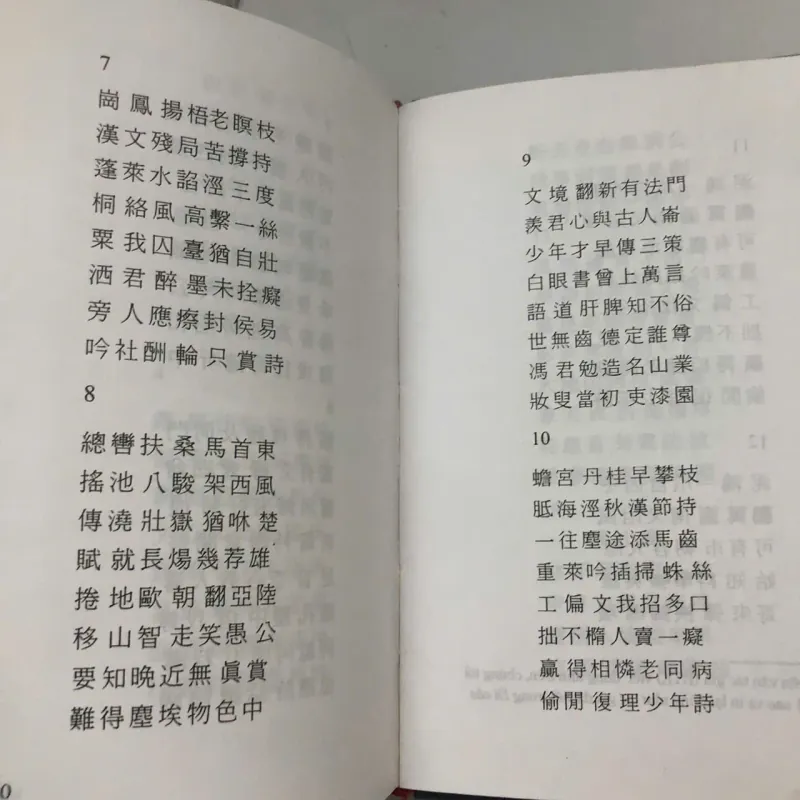 7
崗鳳揚梧老暝枝
漢文殘局苦撐持
蓬萊水諂涇三度
桐絡風高繫一絲
粟我囚臺猶自壯
洒君醉墨未拴癡
旁人應瘵封侯易
吟社酬輪只賞詩
8
總轡扶桑馬首東
搖池八駿架西風
傳澆壯嶽猶咻楚
賦就長煬幾荐雄
捲地歐朝翻亞陸
移山智走笑愚公
要知晚近無眞賞
難得塵埃物色中
9
文境翻新有法門
羨君心與古人崙
少年才早傳三策
白眼書曾上萬言
語道肝脾知不俗
世無齒德定誰尊
馮君勉造名山業
妝叟當初吏漆園
10
蟾宮丹桂早攀枝
胝海涇秋漢節持
一往塵途添馬齒
重萊吟插掃蛛絲
工偏文我招多口
拙不橢人賣一癡
贏得相憐老同病
偷閒復理少年詩